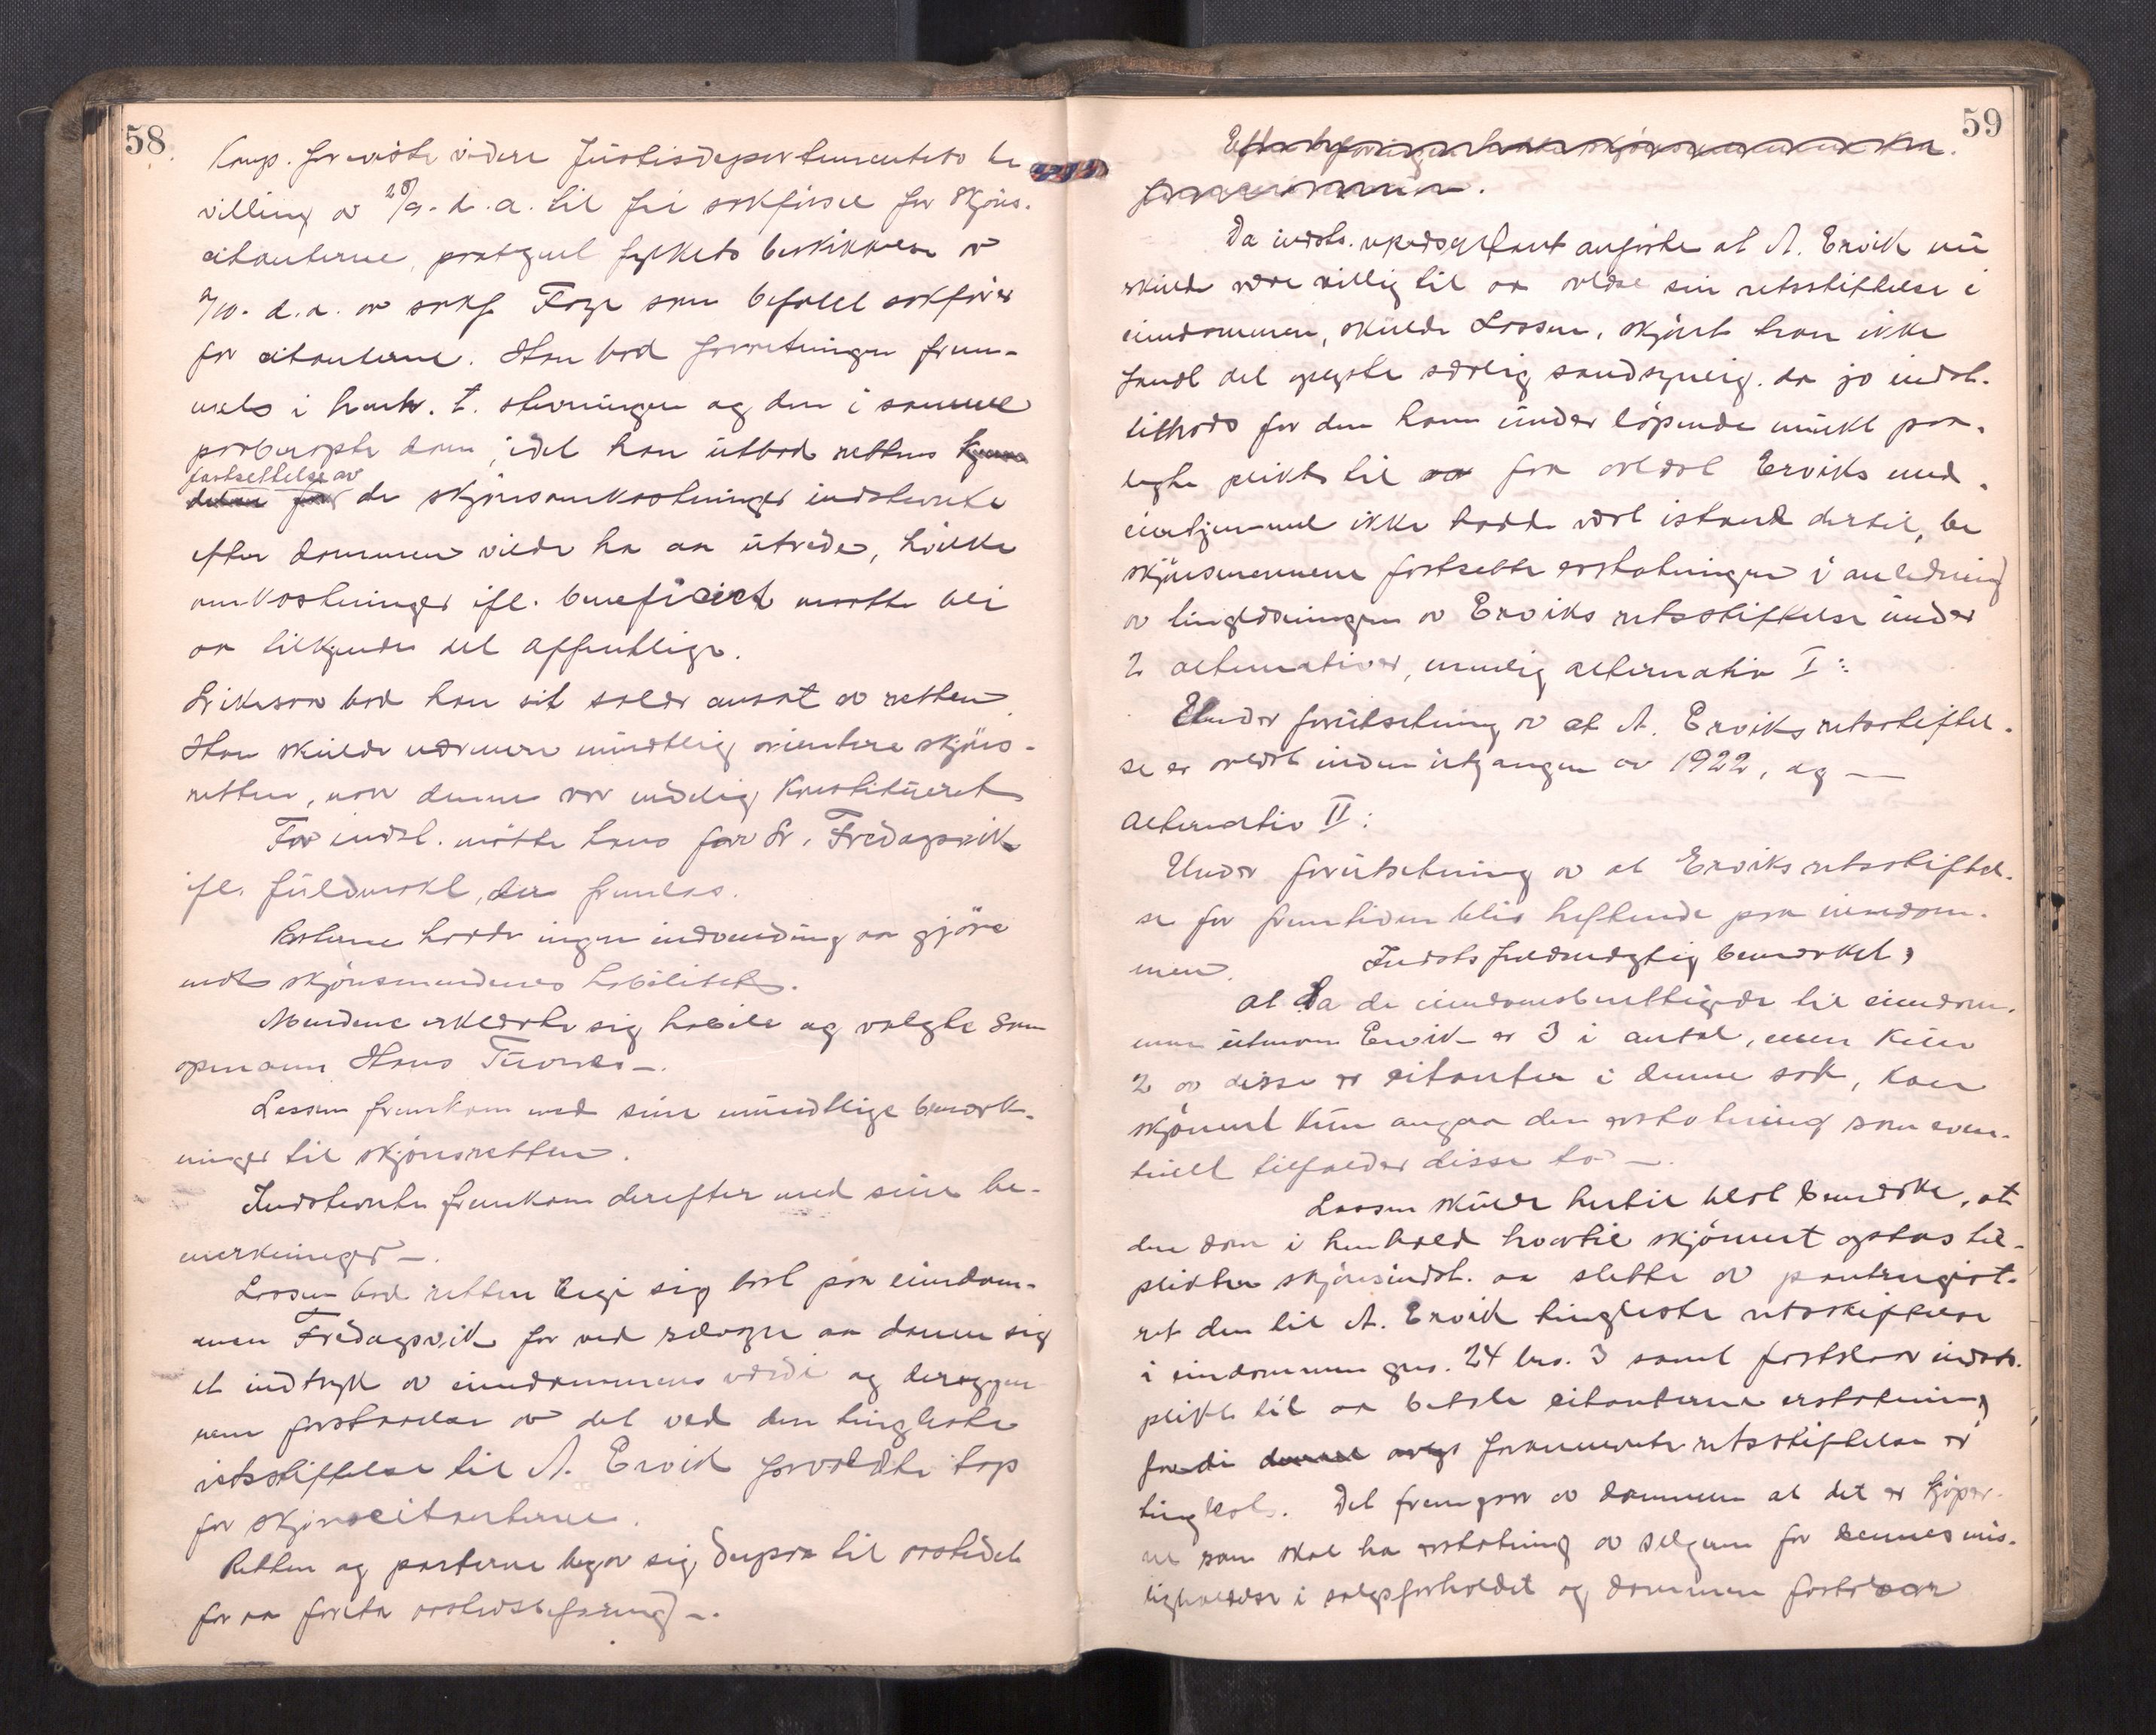 58.
Komp. foreviste videre Justisdepartementets be
villing av 28/9. d.a. til fri sakførsel for skjøns.
citanterne, fylkets beskikkelse av
/10. d.a. av sakf. som befalet sakfører
for citanterne. Han bad forretningen frem-
mets i henh. t. stevningen og den i samme
paaberopte dom, idet han utbad rettens
fastsettelse av
de skjønsomkostninger indstevnte
efter dommen vilde ha aa utrede, hvilke
omkostninger ifl. beneficiet maatte bli
aa tilkjende det offentlige.
Likesaa bad han sit salær ansat av retten.
Han skulde nærmere mundtlig orientere skjøns-
retten, naar denne var endelig konstitueret
For indst. møtte hans far Fredagsvik
ifl. fuldmakt, der fremlas.
Parterne hadde ingen indvending aa gjøre
mot skjønsmændenes habilitet.
Mændene erklærte sig habile og valgte som
opmann Hans
Lassen fremkom med sine mundtlige bemerk-
ninger til skjønsretten.
Indstevnte fremkom derefter med sine be-
merkninger –.
Lassen bad retten begi sig bort paa eiendom-
men Fredagsvik for ved selvsyn aa danne sig
et indtryk av eiendommens værdi og derigjen
nem forstaaelse av det ved den tinglæste
retsstiftelse til A. Ervik forvoldte tap
for skjønscitanterne.
Retten og parterne begav sig derpaa til aastedet
for aa foreta aastedsbefaring –.
59
Da indst. anførte at A. Ervik nu
skulde være villig til aa avløse sin retsstiftelse i
eiendommen, skulde Lassen, skjønt han ikke
fandt det opgjte særlig sandsynlig, da jo indst.
tiltrods for den ham under løpende mulkt paa-
lagte plikt til aa faa avløst Erviks med-
eierhjemmel ikke hadde vært istand dertil, be
skjønsmennene fastsette erstatningen i anledning
av tinglæsningen av Erviks retsstiftelse under
2 alternativer, nemlig alternativ I:
Under forutsetning av at A. Erviks retsstiftel-
se er avløst inden utgangen av 1922, og —
alternativ II:
Under forutsetning av at Erviks retsstiftel-
se for fremtiden blir heftende paa eiendom-
men. Indsts fuldmægtig bemerket,
at da de eiendomsberettigede til eiendom-
men utenom Ervik er 3 i antal, men kun
2 av disse er citanter i denne sak, kan
skjønnet kun angaa den erstatning som even-
tuelt tilfalder disse to —.
Lassen skulde hertil blot bemerke, at
den dom i henhold hvortil skjønnet optas til-
plikter skjønsindst. aa slette av pantregist-
ret den til A. Ervik tinglæste retsstiftelse
i eiendommen gnr. 24 brs. 3 samt fastslaar indsts.
plikt til aa betale citanterne erstatning
fordi forannævnte retsstiftelse er
tinglæst. Det fremgaar av dommen at det er kjøper-
ne som skal ha erstatning av selgeren for dennes mis-
ligholdelse i salgsforholdet og dommen fastslaar